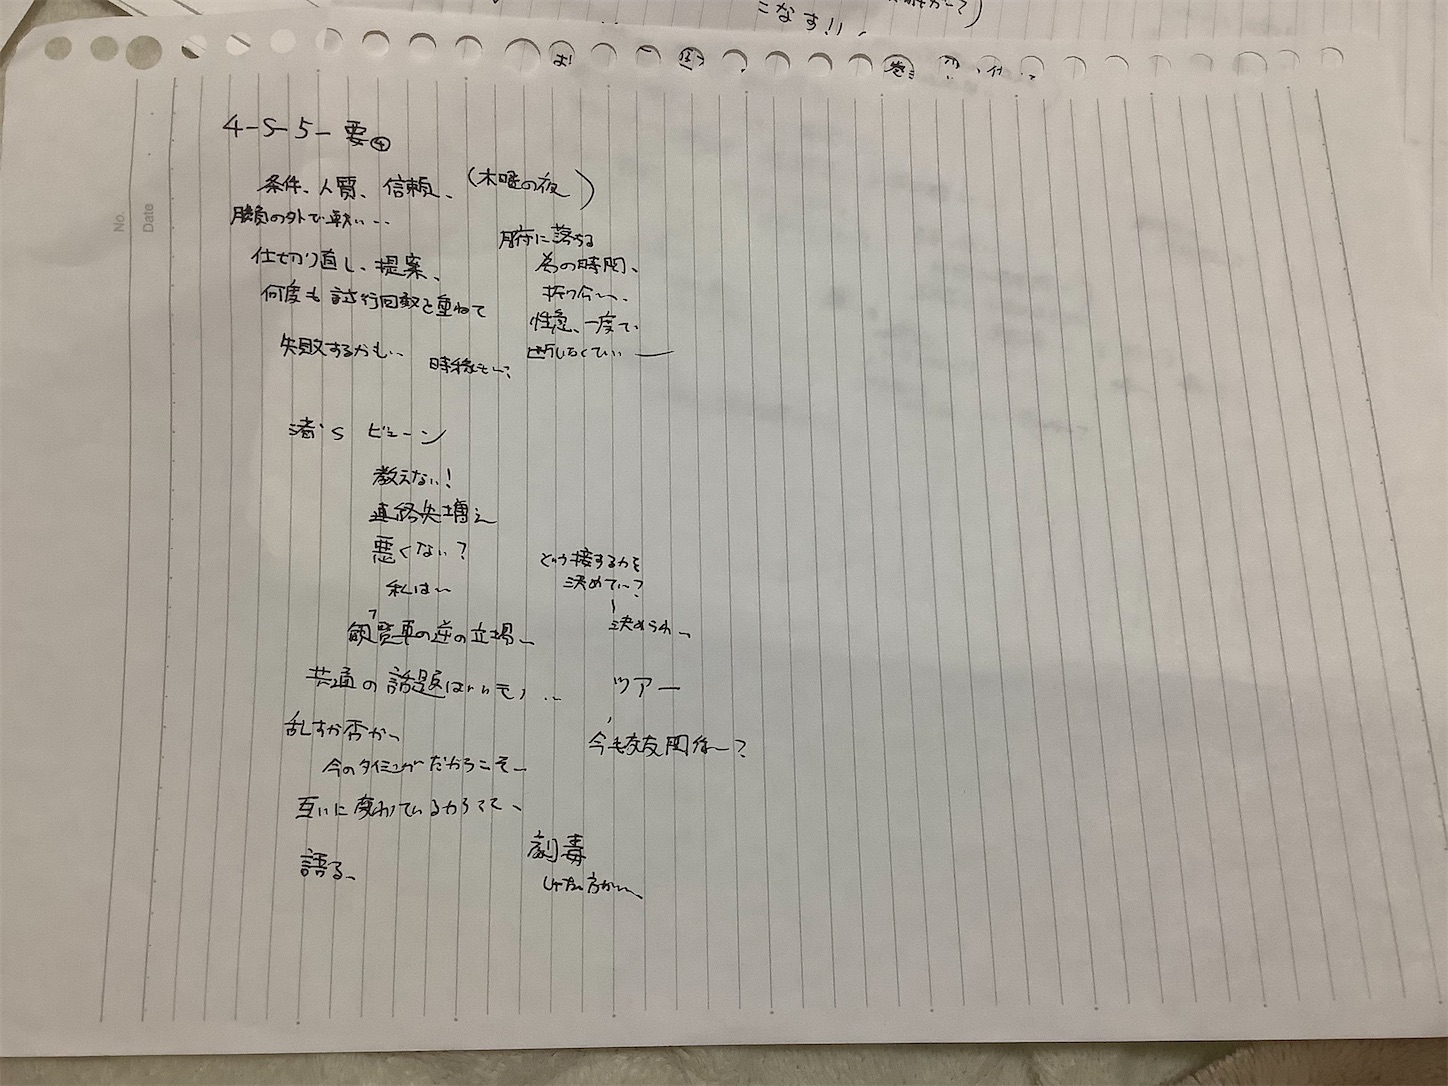 こなす!!
No.
Date
4-S-5-要④
条件、人質、信頼、(木曜の夜)
勝負の外で戦い…
仕切り直し、提案、
何度も試行回数を重ねて
失敗するかも…
腑に落ちる
為の時間、
折り合い、
性急、一度で、
断じなくていい―
渚's ビューン
教えない!
連絡先増え
悪くない?
私は〜
どう接するかを
決めて〜?
決めうれ
観覧車の逆の立場、
共通の話題はいいモノ…
ツアー
乱すか否か、
今も交友関係〜?
今のタイミングだからこそ〜
互いに変わているからこそ、
語る、
劇毒